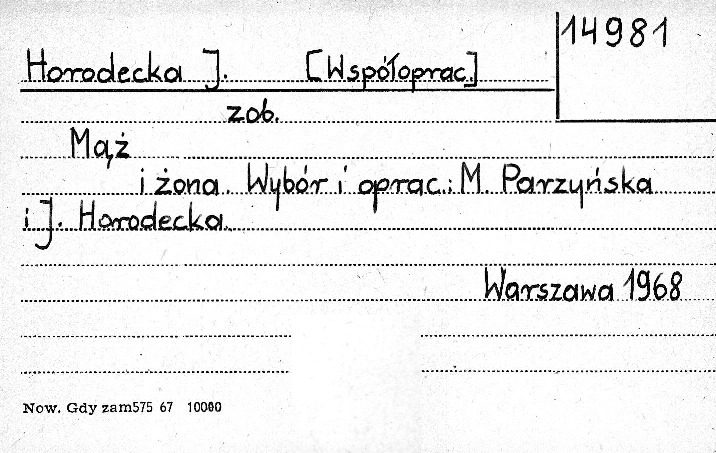 14981
Horodecka J. [Współoprac.]
zob.
Mąż
i żona. Wybór i oprac.: M. Parzyńska
i J. Horodecka.
Warszawa 1968
Now. Gdy zam575 67 10000